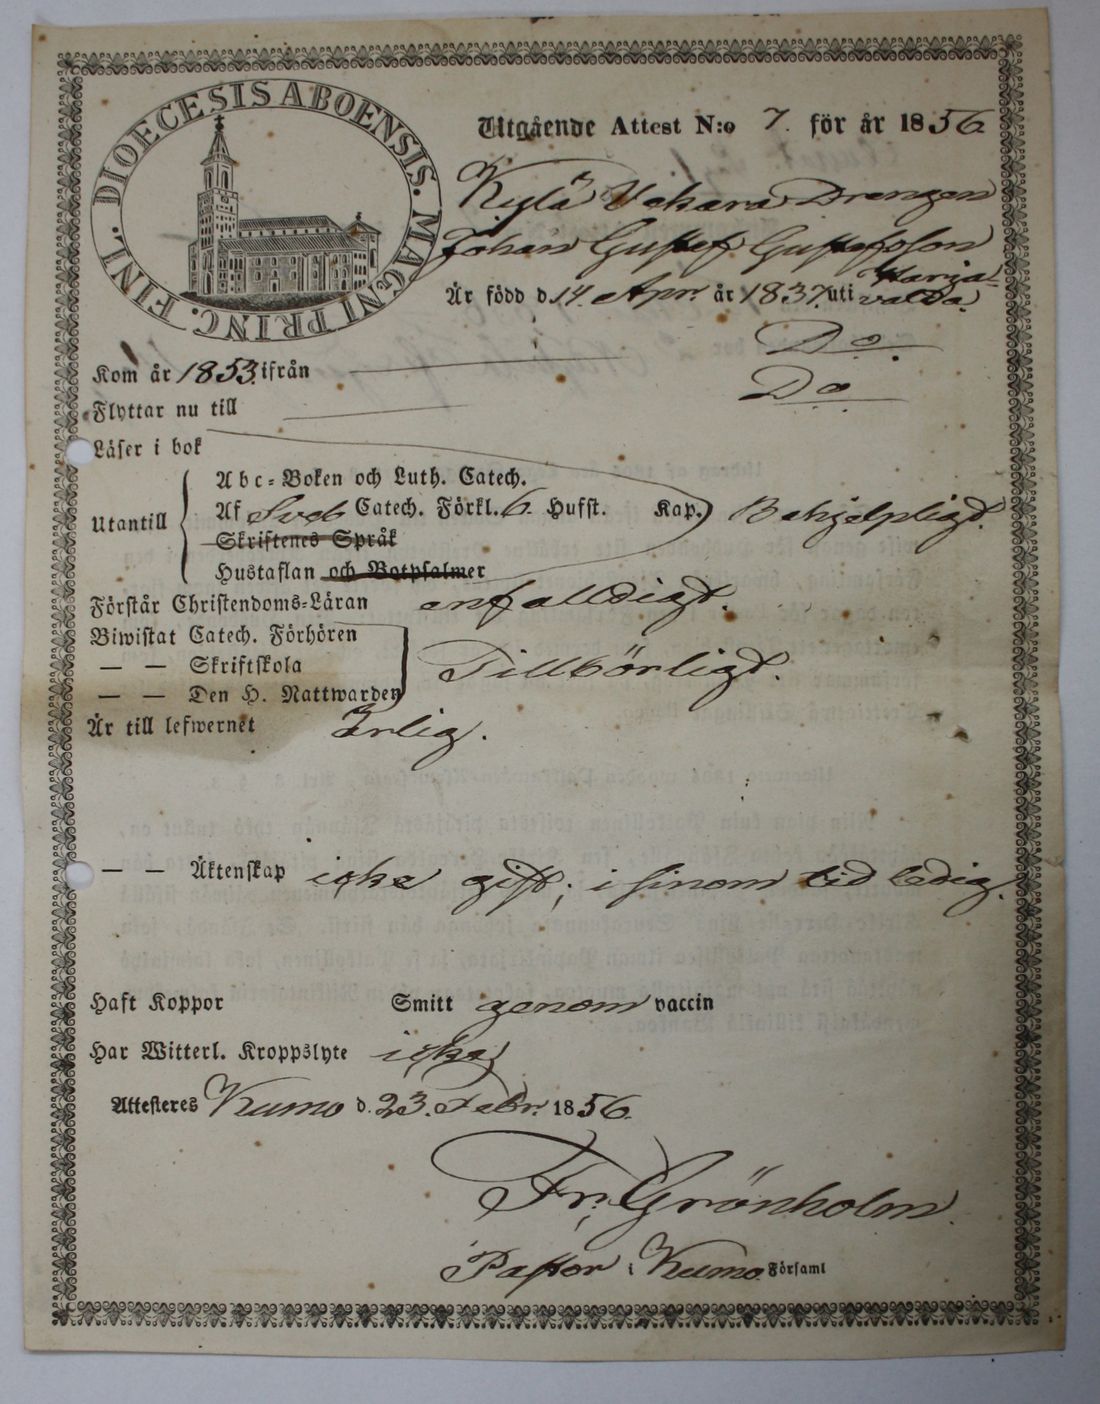 DIOECESIS ABOENSIS. MAGNI PRINC. FINL.
Utgående Attest N:o 7. för år 1856
Kylä Ukara Drengen
Johan Gustaf Gustafsson
Är född d. 14. Apr. år 1837. uti Harjavalda.
Kom år 1853. ifrån Do.
Flyttar nu till Do.
Läser i bok
Utantill
Abc=Boken och Luth. Catech.
Af Sveb Catech. Förkl. 6. Hufst. Kap. Behjelpligt.
Skriftenes Språk
Hustaflan och Botpsalmer
Förstår Christendoms=Läran enfalldigt.
Biwistat Catech. Förhören
— — Skriftskola Tillbörligt.
— — Den H. Nattwarden
Är till lefwernet Ärlig.
— — Äktenskap icke gift; i sinom tid ledig.
Haft Koppor Smitt genom vaccin
Har Witterl. Kroppslyte icke
Attesteres Kumo d. 23. Febr. 1856.
Fr. Grönholm.
Pastor i Kumo Församl